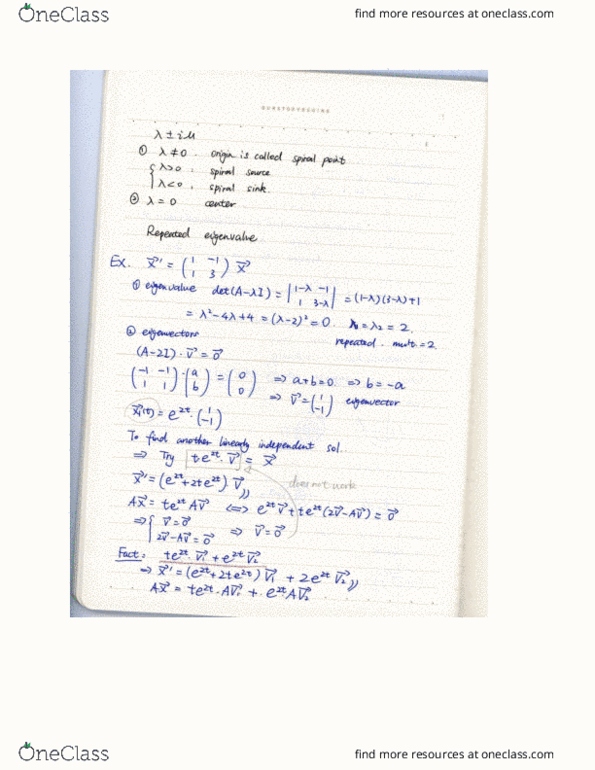 OneClass find more resources at oneclass.com
λ ± iμ
① λ ≠ 0 . origin is called spiral point
{ λ>0 , spiral source
λ<0 , spiral sink.
② λ = 0 center
Repeated eigenvalue
Ex. x⃗' = (1 -1; 1 3) x⃗
① eigenvalue det(A-λI) = |1-λ -1; 1 3-λ| = (1-λ)(3-λ)+1
= λ²-4λ+4 = (λ-2)² = 0. λ₁ = λ₂ = 2.
repeated. mult. = 2.
② eigenvectors
(A-2I)·v⃗ = 0⃗
(-1 -1; 1 1)·(a; b) = (0; 0) ⇒ a+b=0. ⇒ b = -a
⇒ v⃗ = (1; -1) eigenvector
x⃗₁(t) = e^{2t}·(1; -1)
To find another linearly independent sol.
⇒ Try te^{2t}·v⃗ = x⃗
does not work
x⃗' = (e^{2t}+2te^{2t})·v⃗
Ax⃗ = te^{2t}Av⃗ ⇔ e^{2t}v⃗+te^{2t}(2v⃗-Av⃗) = 0⃗
⇒ { v⃗ = 0⃗
2v⃗-Av⃗ = 0⃗ ⇒ v⃗ = 0⃗
Fact: te^{2t}·v⃗₁+e^{2t}v⃗₂
⇒ x⃗' = (e^{2t}+2te^{2t})v⃗₁ + 2e^{2t}v⃗₂
Ax⃗ = te^{2t}·Av⃗₁ + e^{2t}Av⃗₂
OneClass find more resources at oneclass.com